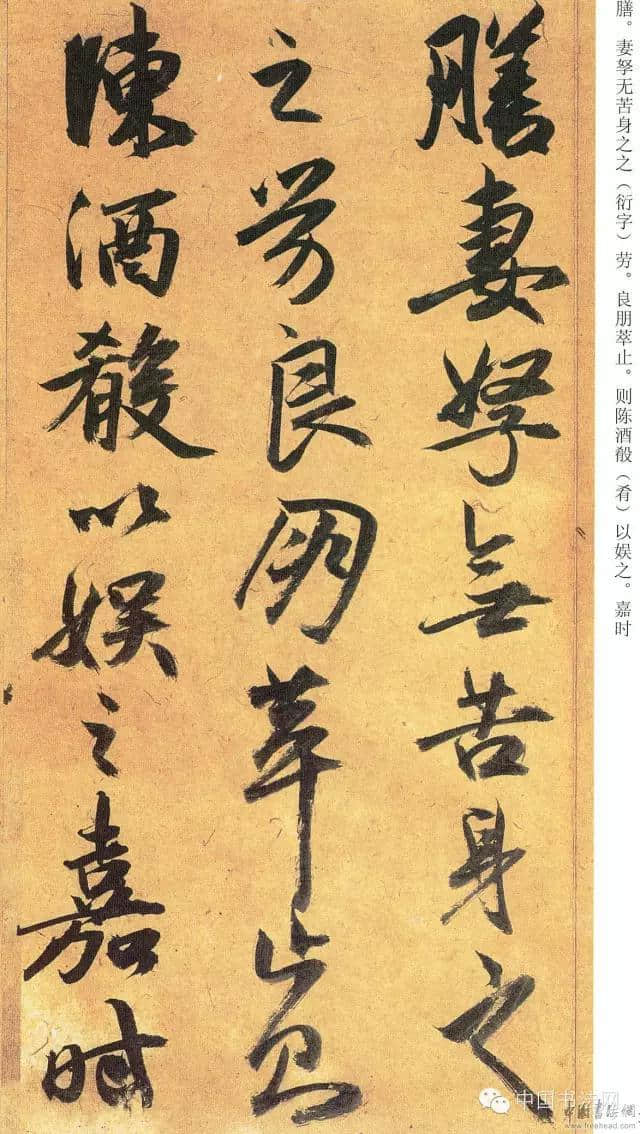 膳。妻孥无苦身之之（衍字）劳。良朋萃止。则陈酒殽（肴）以娱之。嘉时
膳妻孥無苦身之
之劳良朋萃止則
陳酒殽以娱之嘉时
中国书法网
中国书法網
www.freehead.com